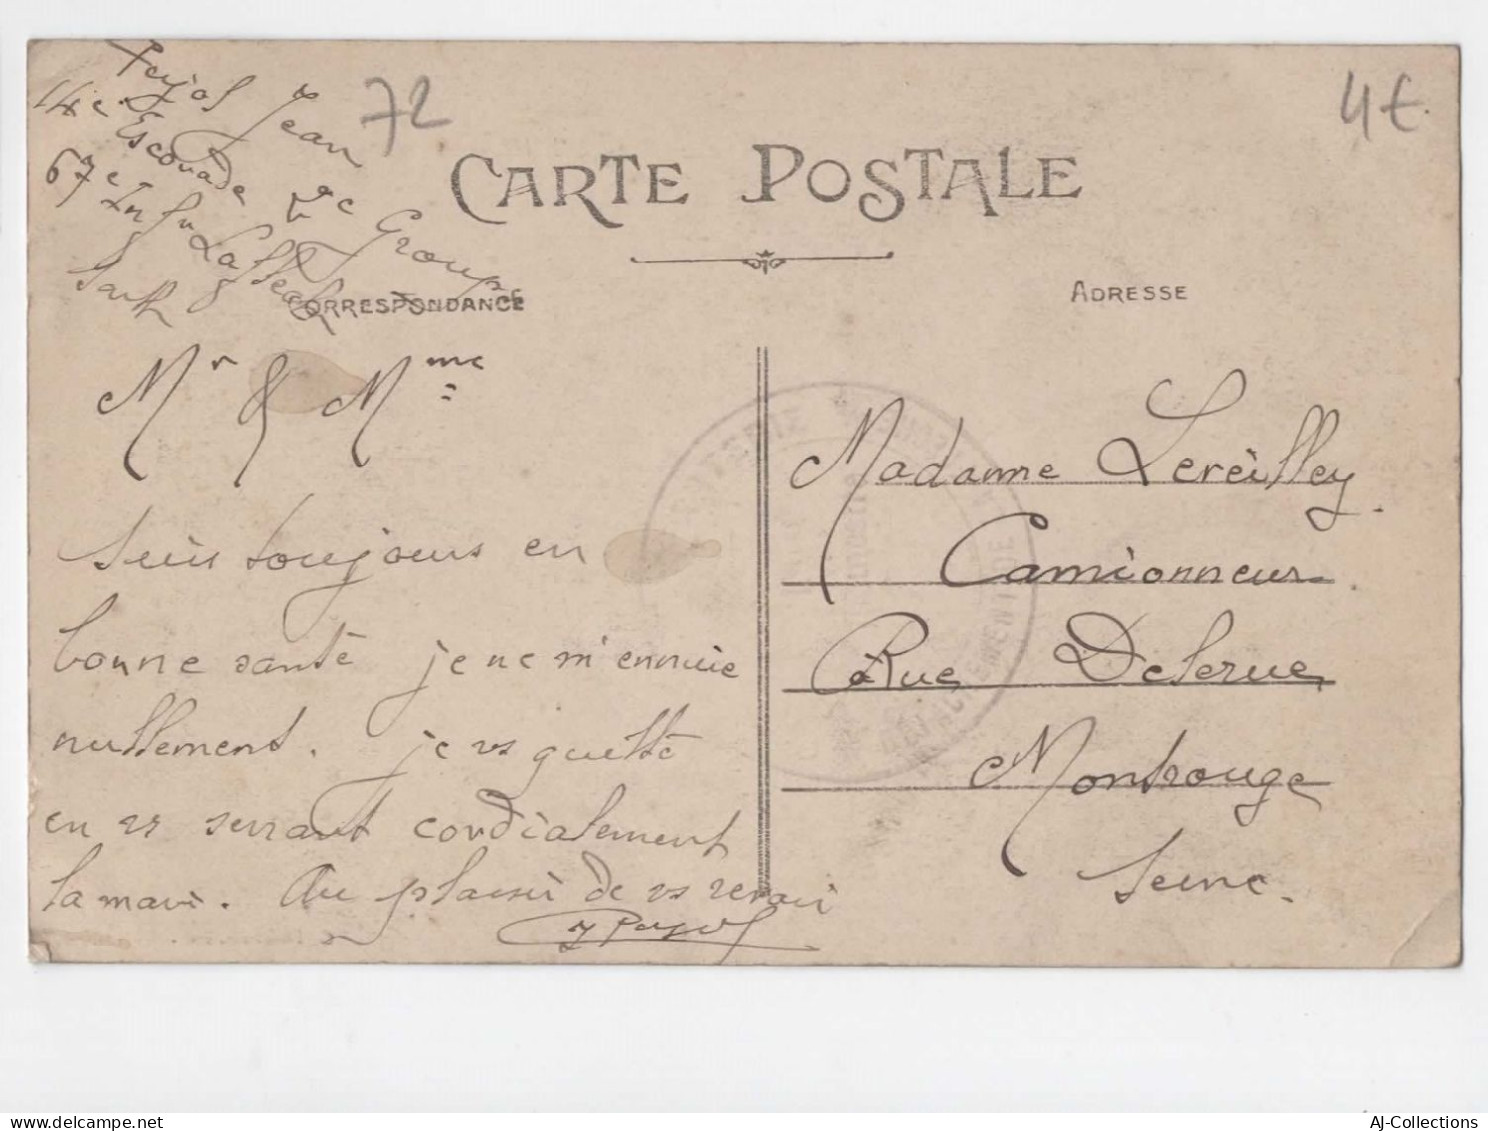 Jean
14e Escouade Ve Groupe
67e Inf
Sarth
72
4€
CARTE POSTALE
CORRESPONDANCE
ADRESSE
Mr & Mme
Suis toujours en
bonne santé je ne m'ennuie
nullement. je vs quitte
en vs serrant cordialement
la main. Au plaisir de vs revoir
Madame Lereilley
Camionneur
Rue Delerue
Montrouge
Seine.
AJ-Collections